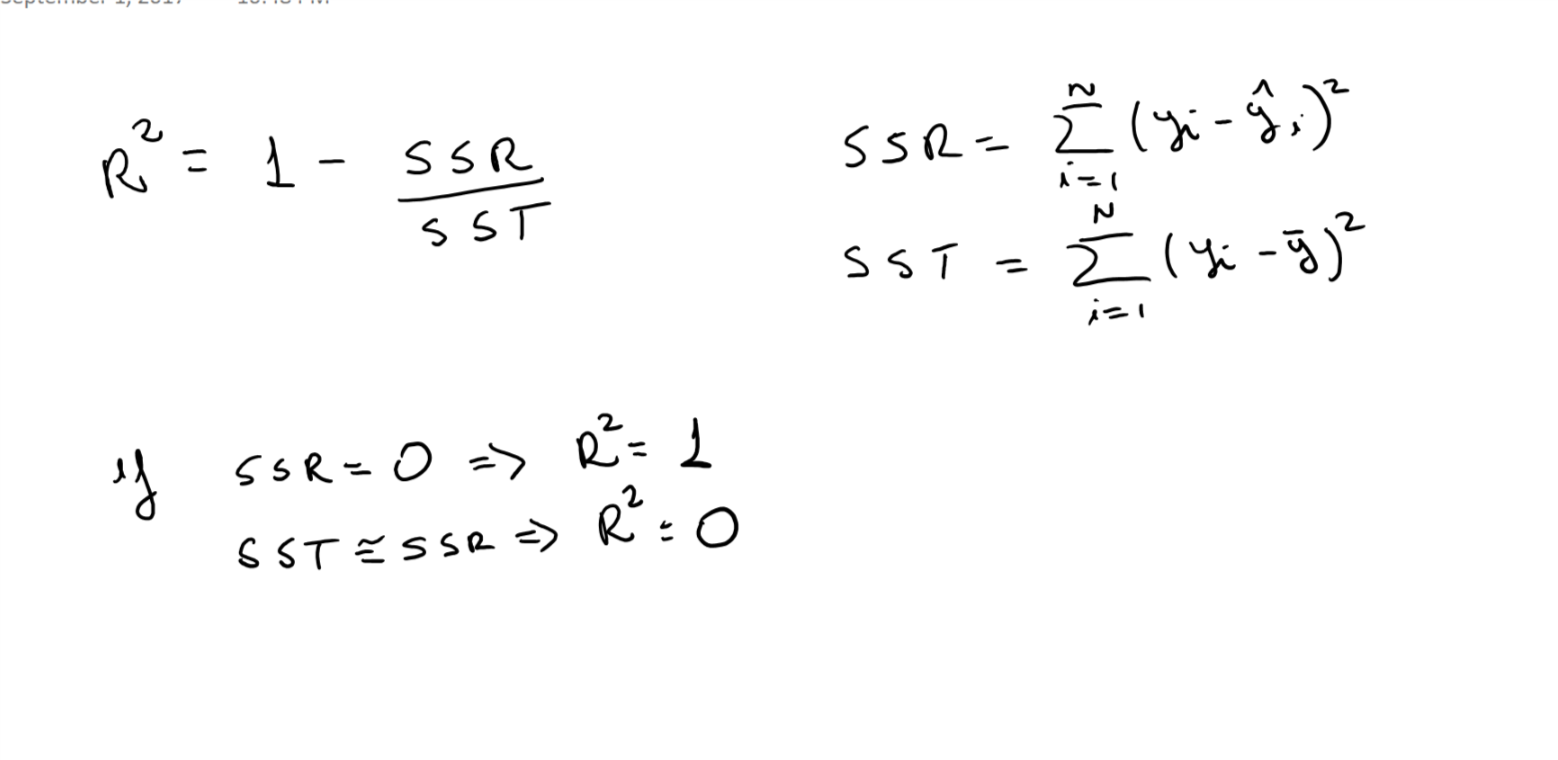 September 1, 2017 10:48 PM
R² = 1 - SSR / SST
SSR = ∑_{i=1}^{N} (yᵢ - ŷᵢ)²
SST = ∑_{i=1}^{N} (yᵢ - ȳ)²
if SSR = 0 => R² = 1
SST ≅ SSR => R² = 0